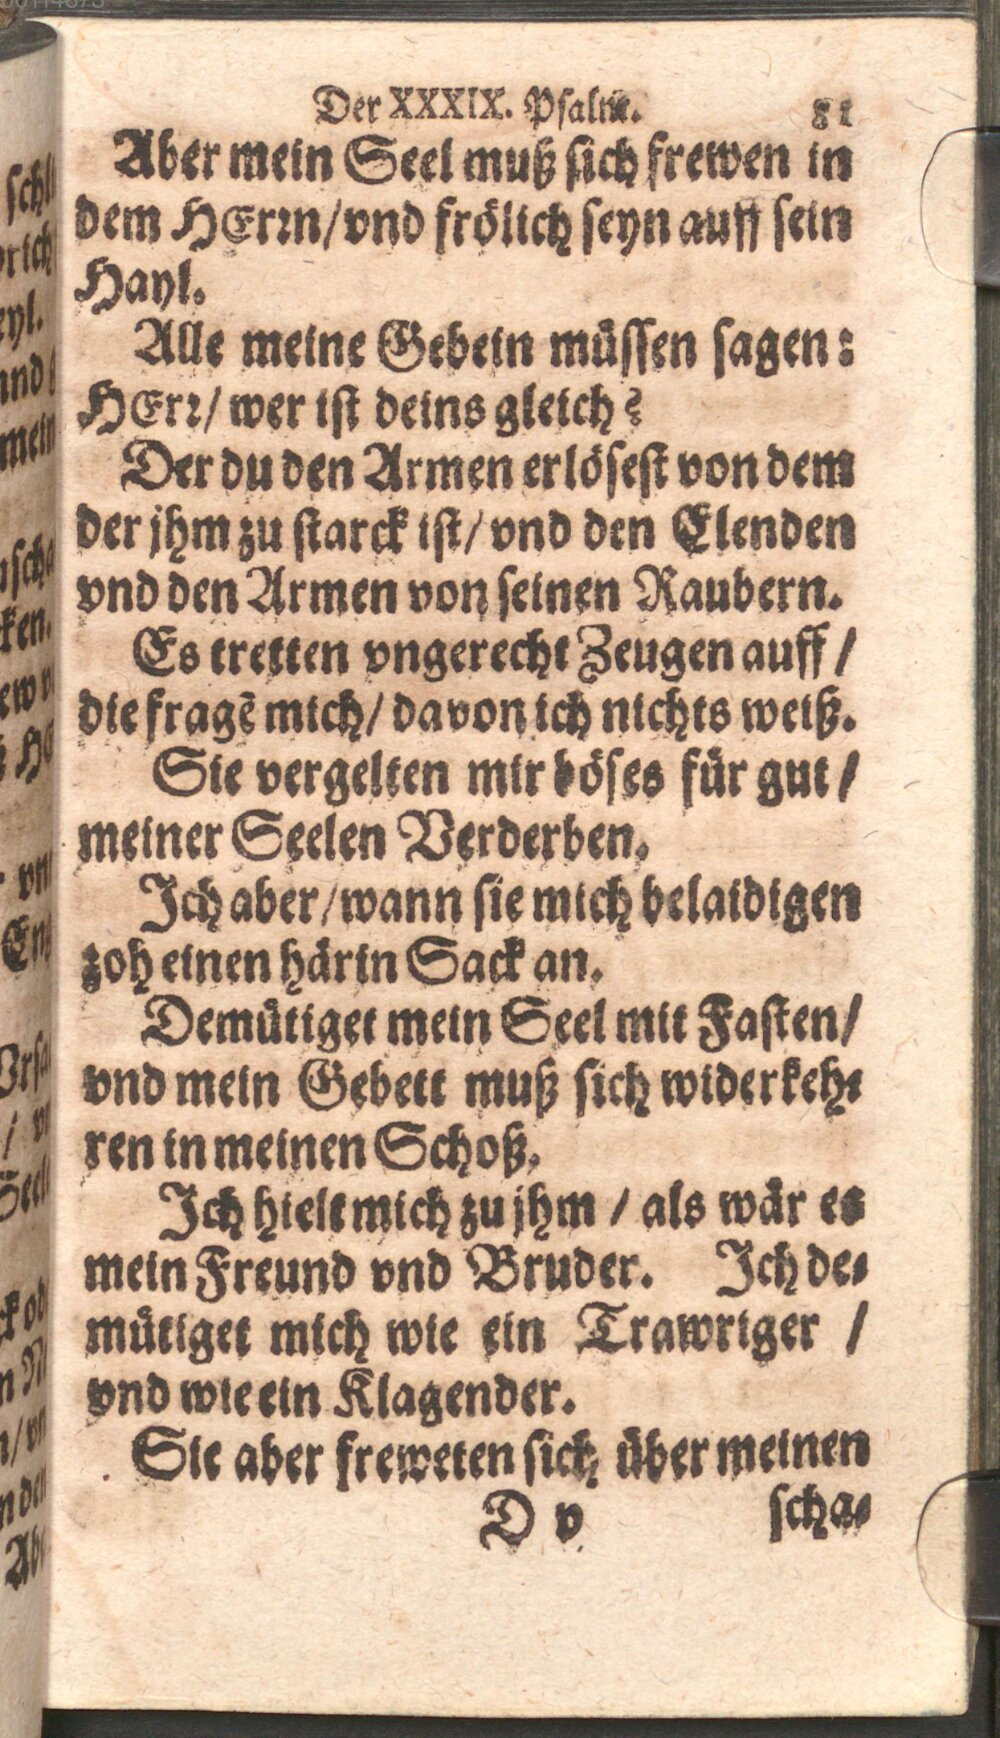 Der XXXIX. Psalm. 81
Aber mein Seel muß sich frewen in
dem HErrn/vnd frölich seyn auff sein
Hayl.
Alle meine Gebein müssen sagen:
HErr/ wer ist deins gleich?
Der du den Armen erlösest von dem
der jhm zu starck ist/ vnd den Elenden
vnd den Armen von seinen Raubern.
Es tretten vngerecht Zeugen auff /
die fragẽ mich/ davon ich nichts weiß.
Sie vergelten mir böses für gut /
meiner Seelen Verderben.
Ich aber/wann sie mich belaidigen
zoh einen härin Sack an.
Demütiget mein Seel mit Fasten/
vnd mein Gebett muß sich widerkeh-
ren in meinen Schoß.
Ich hielt mich zu jhm / als wär es
mein Freund vnd Bruder. Ich de-
mütiget mich wie ein Trawriger /
vnd wie ein Klagender.
Sie aber freweten sich über meinen
D v scha-